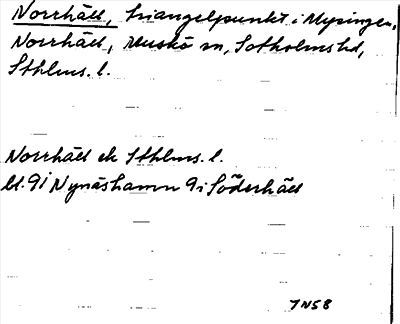 Norrhäll, triangelpunkt i Mysingen,
Norrhäll, Muskö sn, Sotholms hd,
Sthlms. l.
Norrhäll ek Sthlms. l.
bl. 9i Nynäshamn 9i Söderhäll
7 N 58